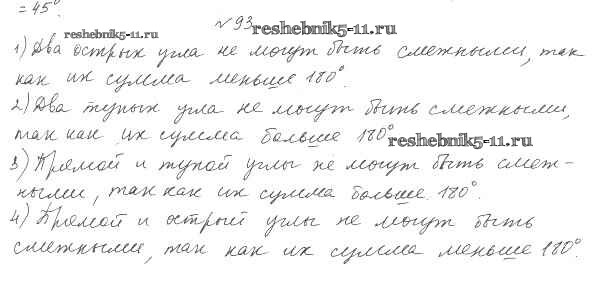 = 45°.
№ 93 reshebnik5-11.ru
reshebnik5-11.ru
1) Два острых угла не могут быть смежными, так
как их сумма меньше 180°.
2) Два тупых угла не могут быть смежными,
так как их сумма больше 180°.
reshebnik5-11.ru
3) Прямой и тупой углы не могут быть смеж-
ными, так как их сумма больше 180°.
4) Прямой и острый углы не могут быть
смежными, так как их сумма меньше 180°.